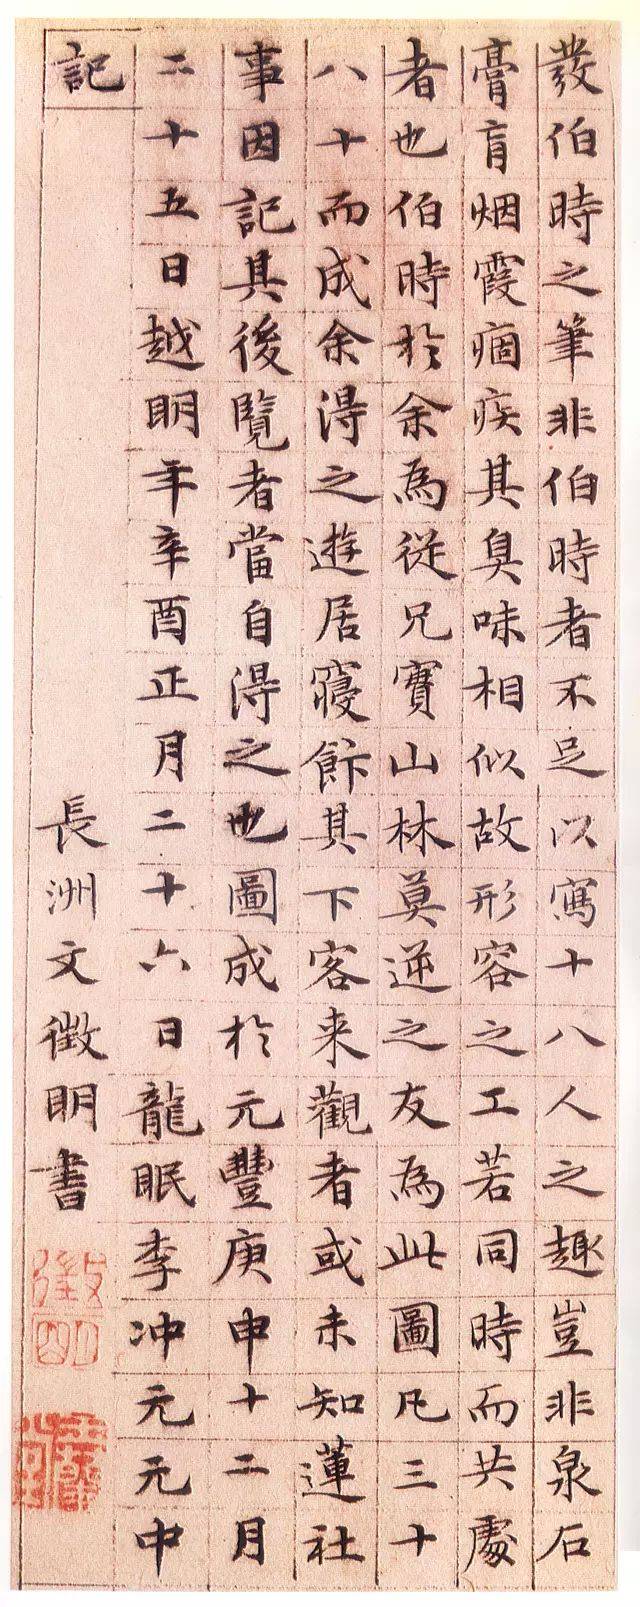 發伯時之筆非伯時者不足以寫十八人之趣豈非泉石
膏肓烟霞痼疾其臭味相似故形容之工若同時而共處
者也伯時於余為從兄實山林莫逆之友為此圖凡三十
八十而成余得之遊居寢飾其下客来觀者或未知蓮社
事因記其後覽者當自得之也圖成於元豐庚申十二月
二十五日越明年辛酉正月二十六日龍眠李冲元元中
記
長洲文徵明書
徵明